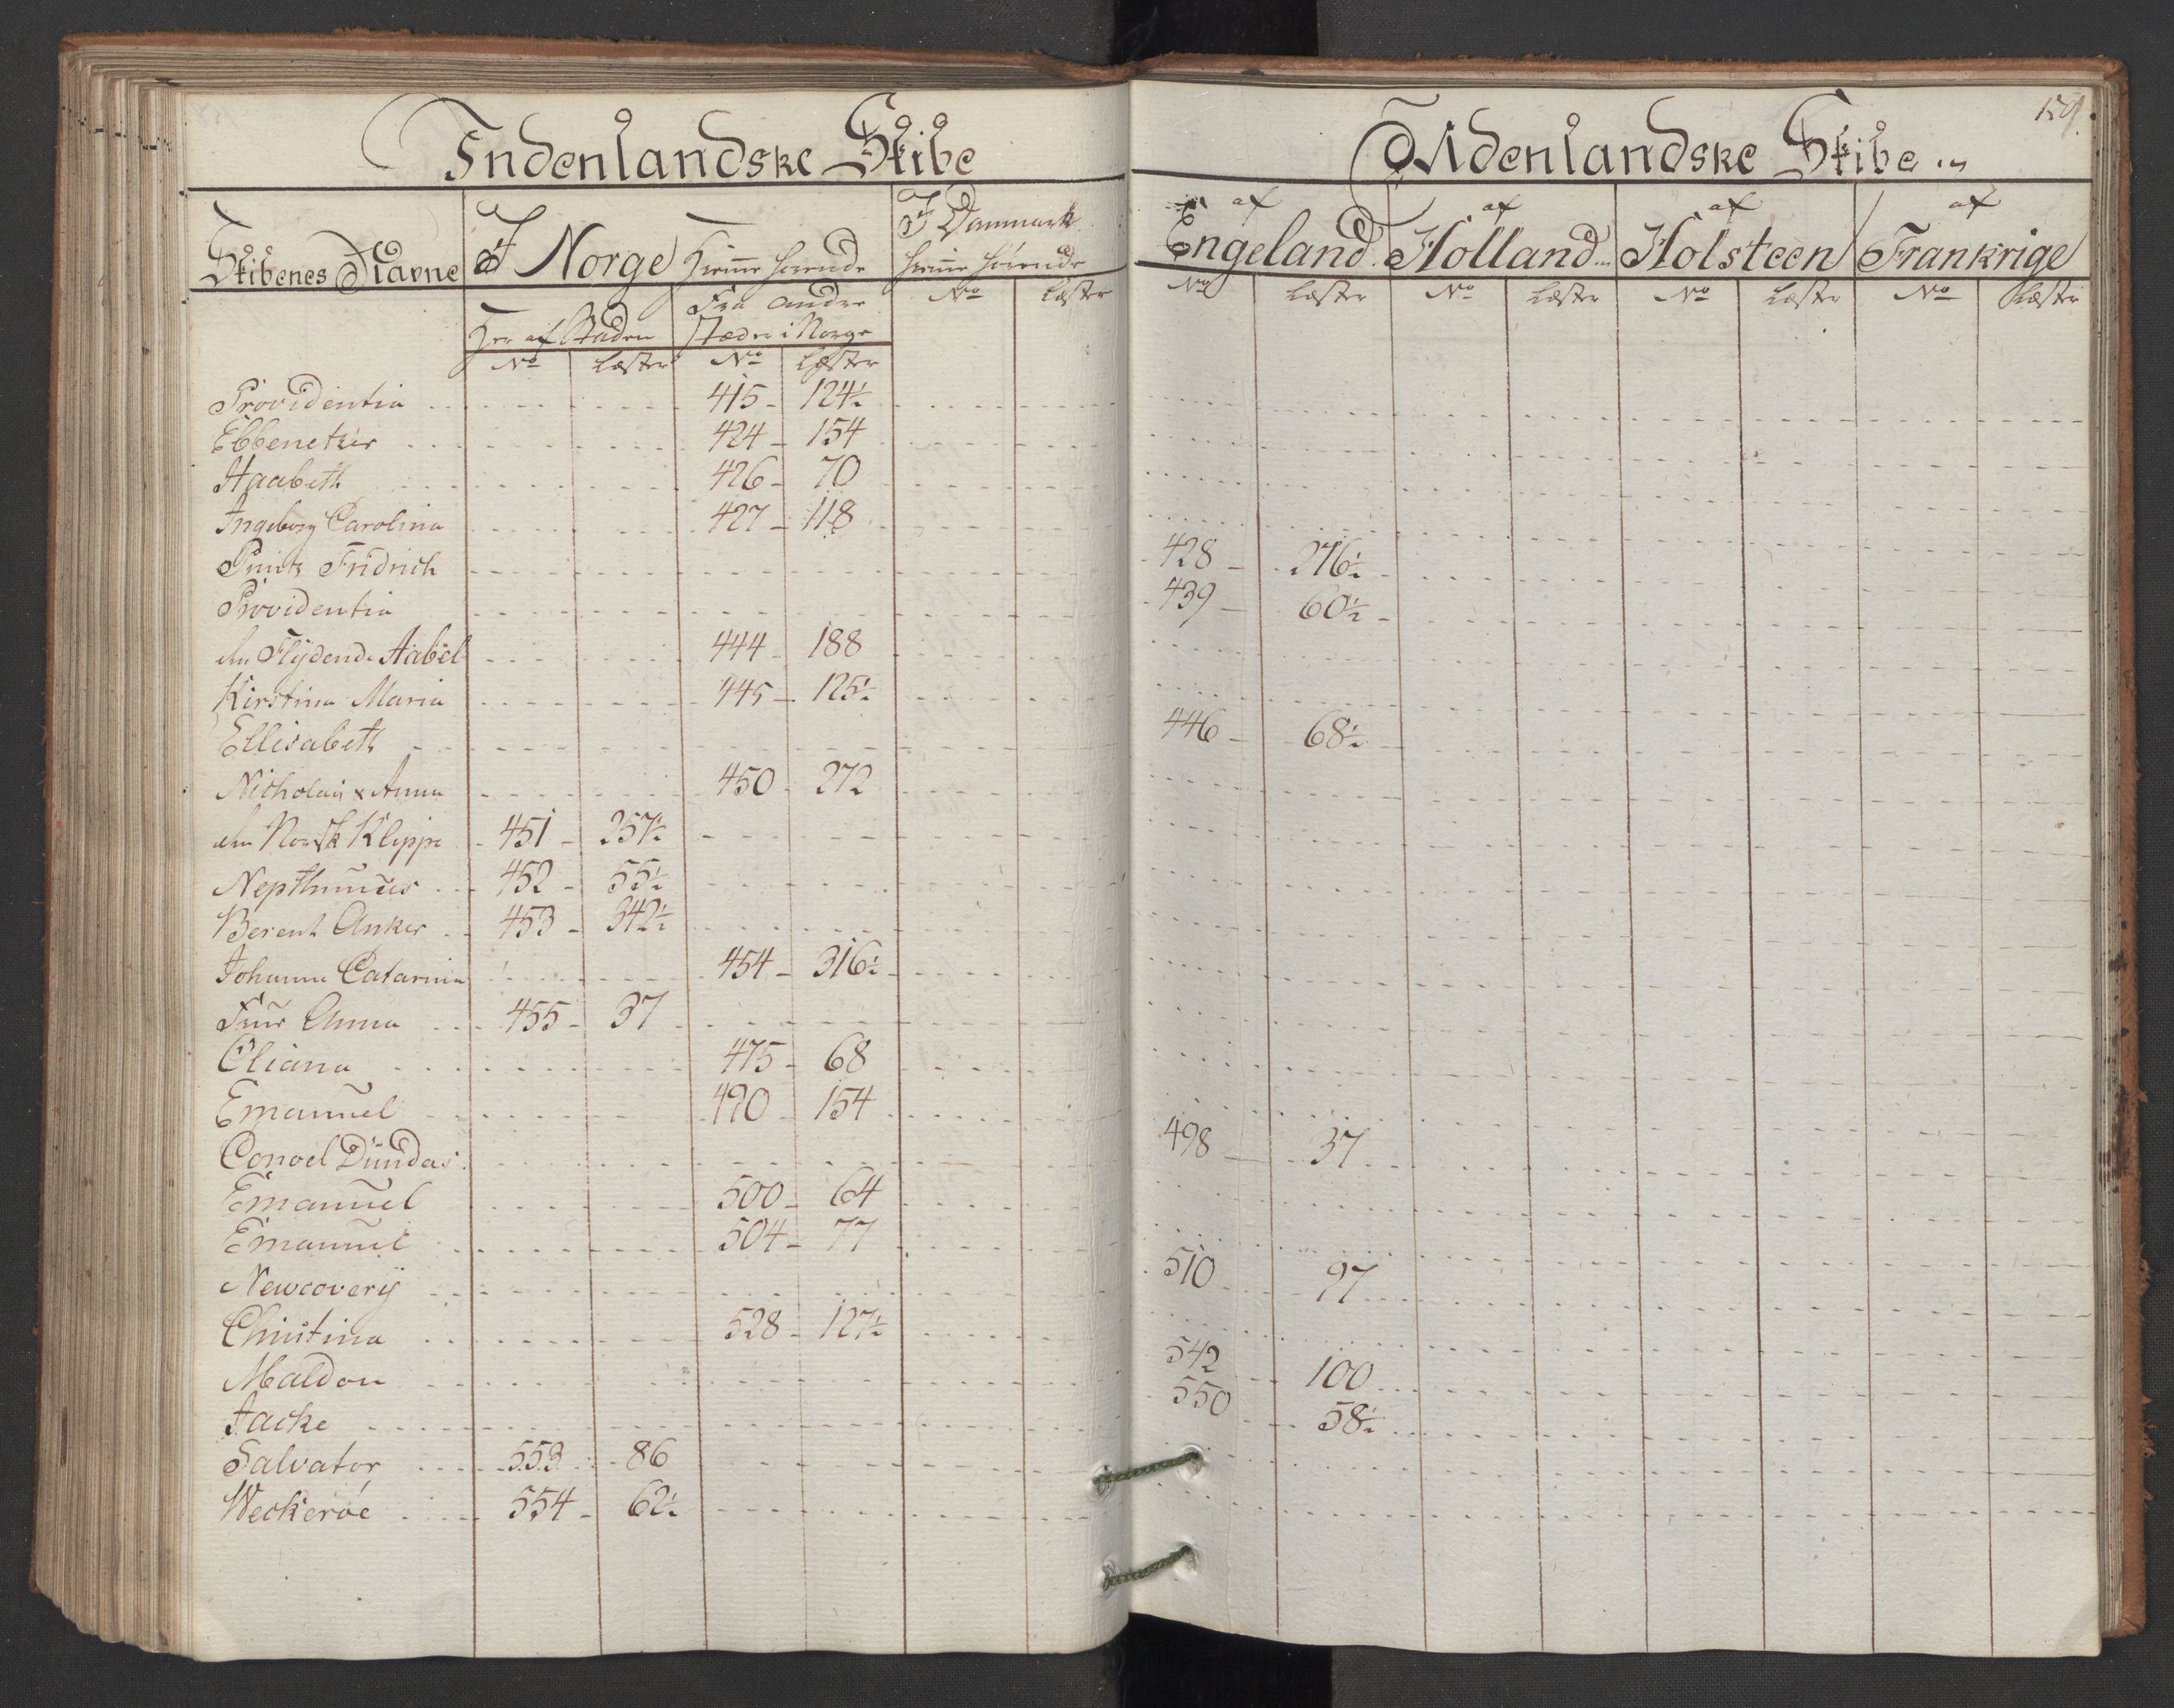 159.
Indenlandske Skibe
Udenlandske Skibe
Skibenes Navne
I Norge Hiemme hørende
I Danmark
hiemme hørende
af Engeland
af Holland
af Holsteen
af Frankrige
Her af Staden
Fra andre
Stæder i Norge
No Læster No Læster No Læster No Læster No Læster No Læster No Læster
Providentia 415 124½
Ebbenetzer 424 154
Haabeth 426 70
Ingeborg Carolina 427 118
Printz Fridrich 428 276½
Providentia 439 60½
den Flydende Aabel 444 188
Kirstina Maria 445 125½
Ellisabeth 446 68½
Nicholai & Anna 450 272
den Norske Klippe 451 257½
Nepthunus 452 55½
Berent Anker 453 342½
Johanna Catarina 454 316½
Anna 455 37
Eliana 475 68
Emanuel 490 154
Dundas 498 37
Emanuel 500 64
Emanuel 504 77
Newcovery 510 97
Christina 528 127½
Maldon 542 100
Jacke 550 58½
Salvator 553 86
Weckerøe 554 62½